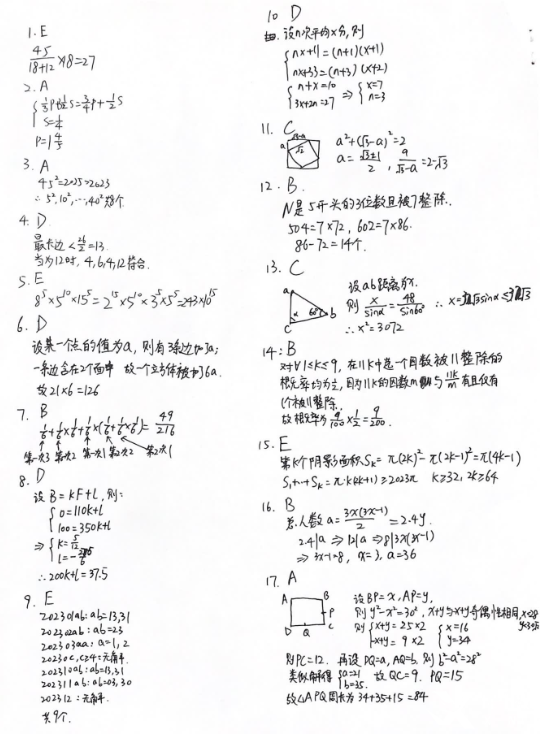 1. E
45/(18+12) × 18 = 27
2. A
S = 1/4
P = 1 4/5
3. A
45² = 2025 > 2023
∴ 5², 10², …, 40² 共8个
4. D
最长边 < 26/2 = 13
当为12时, 4, 6, 4, 12符合.
5. E
8⁵×5¹⁰×15⁵ = 2¹⁵×5¹⁰×3⁵×5⁵ = 243×10¹⁵
6. D
设某一个点的值为a, 则有3条边加了a;
一条边会在2个面中 故一个立方体被加了6a.
故21×6=126
7. B
1/6 + 1/6×1/6 + 1/6×(1/6+1/6×1/6) = 49/216
第一次3 第一次2 第一次1 第二次2 第二次1
8. D
设 B = kF + l, 则:
0 = 110k + l
100 = 350k + l
⇒ k = 5/12
∴ 200k + l = 37.5
9. E
202301ab: ab=13,31
202302ab: ab=23
202303aa: a=1, 2
20230c, c≥4: 无解.
202310ab: ab=13,31
202311ab: ab=03, 30
202312: 无解.
共9个.
10 D
设n次平均x分, 则
nx+11 = (n+1)(x+1)
nx+33 = (n+3)(x+2)
n+x=10
3x+2n=27 ⇒ x=7
n=3
11. C
a² + (√3-a)² = 2
12. B
N是5开头的3位数且被7整除.
504=7×72, 602=7×86.
86-72=14个.
13. C
设ab距离为x.
则 x/sinα = 48/sin60°
∴ x² = 3072
14: B
对∀1≤k≤9, 在11k中选一个因数被11整除的
概率均为1/2, 因为11k的因数m与11k/m有且仅有
1个被11整除.
故概率为 9/100 × 1/2 = 9/200.
15. E
第k个阴影面积Sₖ = π(2k)² - π(2k-1)² = π(4k-1)
S₁+…+Sₖ = π·k(2k+1) ≥ 2023π k≥32, 2k≥64
16. B
总人数 a = 3x(3x-1)/2 = 2.4y.
2.4|a ⇒ 12|a ⇒ 8|3x(3x-1)
⇒ 3x-1=8, x=3, a=36
17. A
A B P C D Q
设BP=x, AP=y,
则 y²-x²=30², x+y与-x+y奇偶性相同,
则 x+y=25×2
-x+y=9×2
x=16
y=34
则PC=12. 再设DQ=a, AQ=b, 则 b²-a²=28²
类似解得 a=21
b=35. 故QC=9. PQ=15
故△APQ周长为34+35+15=84